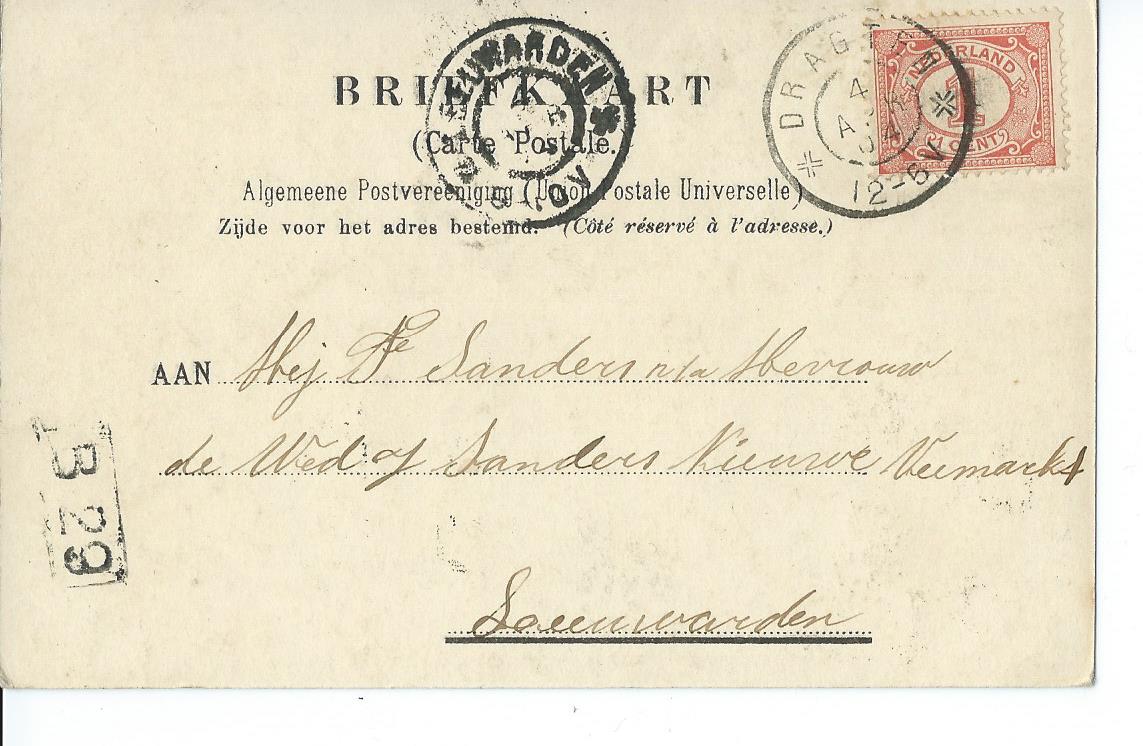 BRIEFKAART
(Carte Postale.)
Algemeene Postvereeniging (Union Postale Universelle)
Zijde voor het adres bestemd. (Côté réservé à l'adresse.)
LEEUWARDEN
DRAGTEN
4
12-6V
NEDERLAND
1
CENT
AAN Mej Sanders Mevrouw
de Wed Sanders Nieuwe Veemarkt
Leeuwarden
B 29